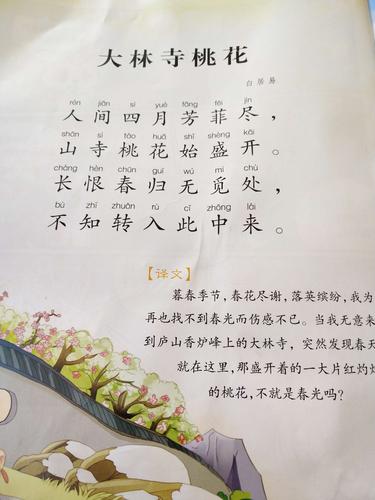 大林寺桃花
白居易
rén jiān sì yuè fāng fēi jìn
人间四月芳菲尽，
shān sì táo huā shǐ shèng kāi
山寺桃花始盛开。
cháng hèn chūn guī wú mì chù
长恨春归无觅处，
bù zhī zhuǎn rù cǐ zhōng lái
不知转入此中来。
【译文】
暮春季节，春花尽谢，落英缤纷，我为
再也找不到春光而伤感不已。当我无意来
到庐山香炉峰上的大林寺，突然发现春天
就在这里，那盛开着的一大片红灼灼
的桃花，不就是春光吗？